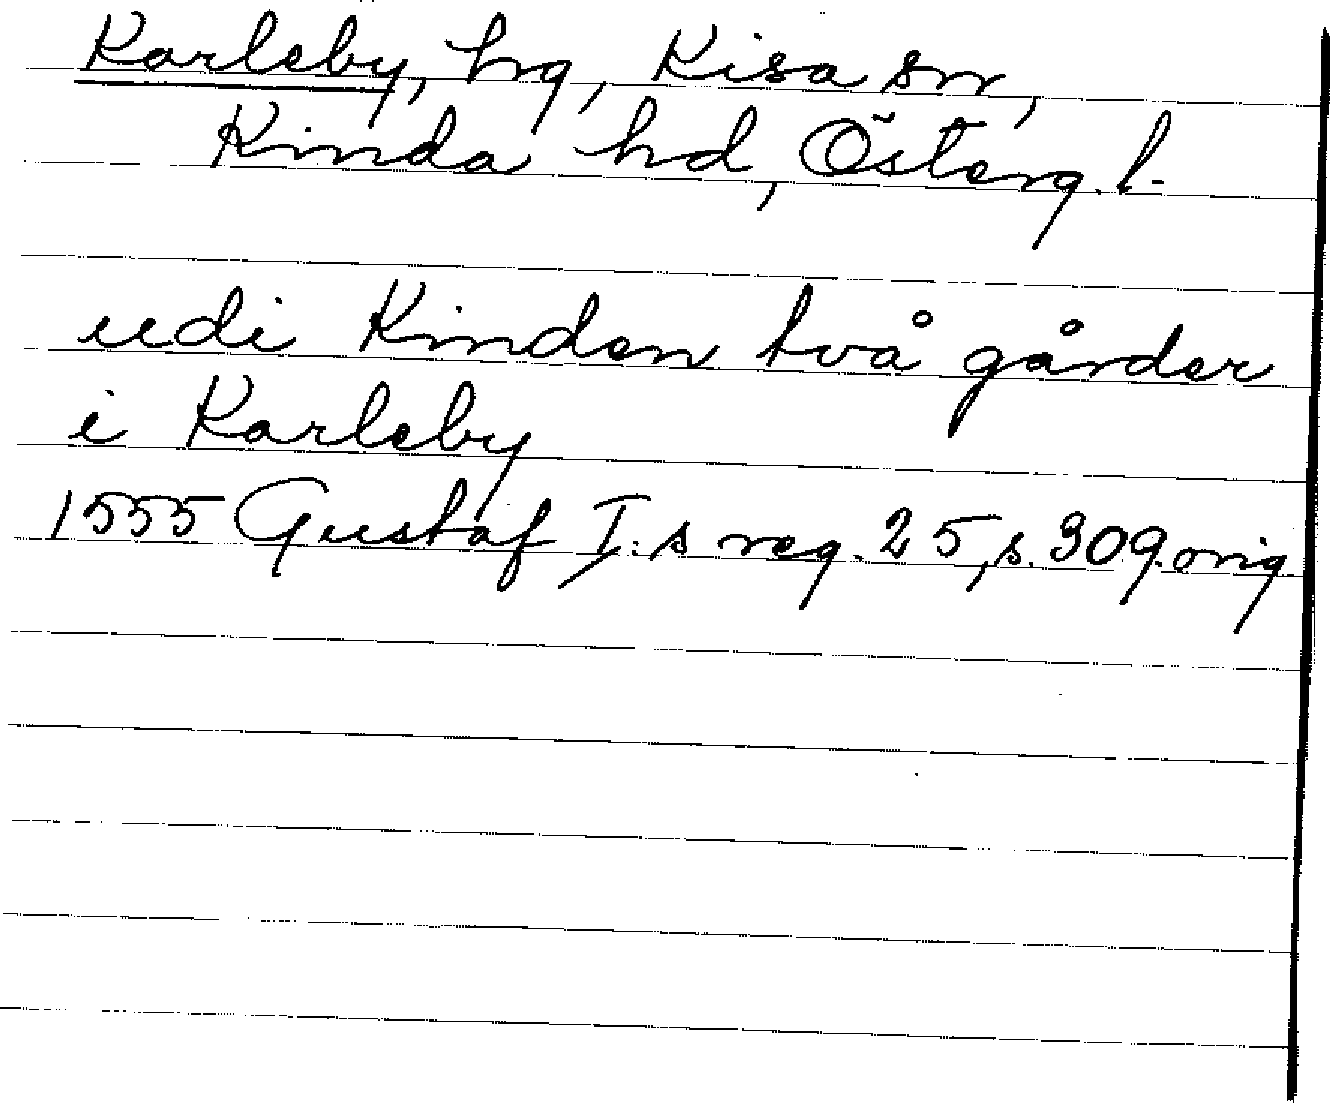 Karleby, hg, Kisa sn,
Kinda hd, Österg. l.
udi Kinden två gårder
i Karleby
1555 Gustaf I:s reg. 25, s. 309. orig